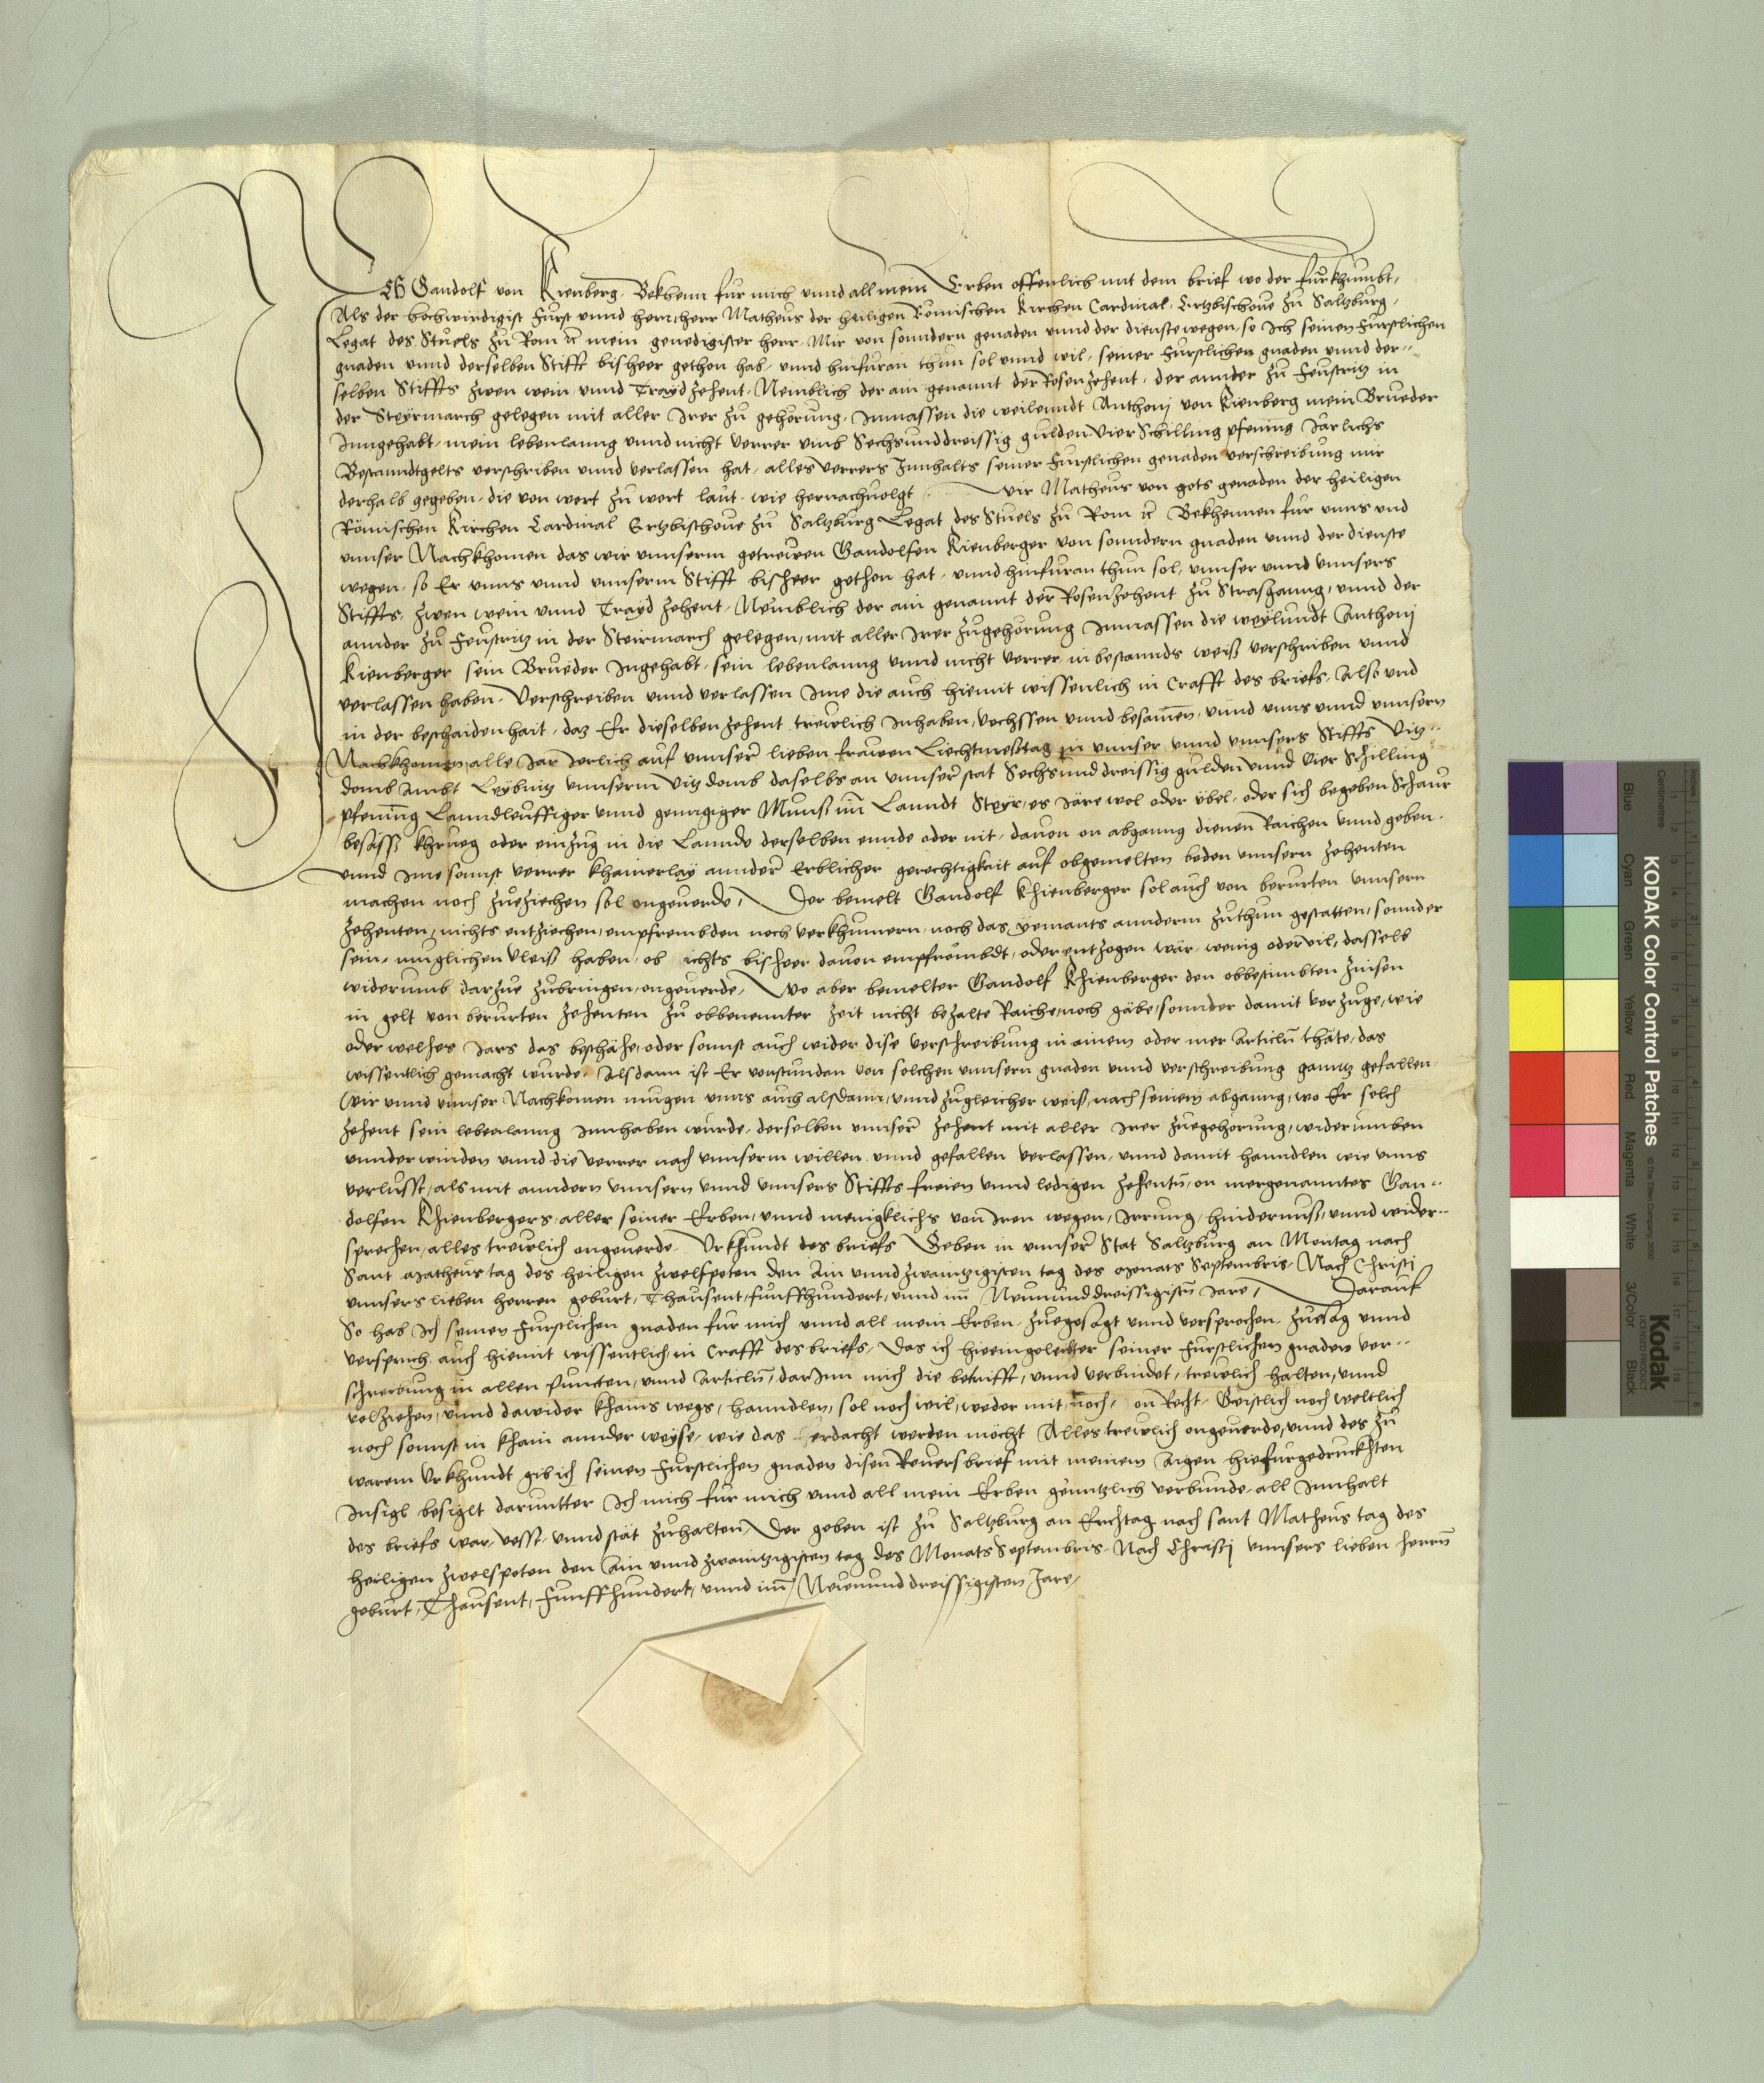 ICH Gandolf von Kienberg. Bekhenn fur mich vnnd all mein Erben offenlich mit dem brief wo der furkhumbt,
Als der hochwirdigist Furst vnnd herr, herr Matheus der heiligen Römischen Kirchen Cardinal, Ertzbischoue zu Saltzburg,
Legat des Stuels zu Rom ꝛc mein genedigister herr, Mir von sonndern genaden vnnd der dienste wegen, so Ich seinen Furstlichen
gnaden vnnd derselben Stifft bisheer gethon hab, vnnd hinfuran thun sol vnnd wil, seiner Furstlichen gnaden vnnd der¨
selben Stiffts zwen wein vnnd Trayd zehent, Nemblich der ain genannt der Rosenzehent, der annder zu Feustritz in
der Steyrmarch gelegen mit aller Irer zu gehörung, Inmassen die weilenndt Anthonj von Kienberg mein Brueder
Inngehabt, mein lebenlanng vnnd nicht verrer vmb Sechsunddreissig gulden vier Schilling pfening Järlichs
Bestanndtgelts verschriben vnnd verlassen hat, alles verrers Innhalts seiner Furstlichen genaden verschreibung mir
derhalb gegeben, die von wort zu wort laut, wie hernachuolgt Wir Matheus von gots genaden der heiligen
Römischen Kirchen Cardinal Ertzbischoue zu Saltzburg Legat des Stuels zu Rom ꝛc Bekhennen fur vnns vnd
vnnser Nachkhomen das wir vnnserm getrewen Gandolfen Kienberger von sonndern gnaden vnnd der dienste
wegen, so Er vnns vnnd vnnserm Stifft bisheer gethon hat, vnnd hinfuran thun sol, vnnser vnnd vnnsers
Stiffts, zwen wein vnnd Trayd zehent, Nemblich der ain genannt der Rosenzehent zu Strasganng, vnnd der
annder zu Feustritz in der Steirmarch gelegen, mit aller Irer zugehörung Inmassen die weylundt Anthonj
Kienberger sein Brueder Ingehabt, sein lebenlanng vnnd nicht verrer in bestannds weiß verschriben vnnd
verlassen haben. Verschreiben vnnd verlassen Ime die auch hiemit wissentlich in Crafft des briefs, Also vnd
in der beschaidenhait, daz Er dieselben zehent trewlich Inhaben, vechssen vnnd besamen, vnnd vnns vnnd vnnsern
Nachkhomen, alle Jar Jerlich auf vnnser lieben frawen Liechtmesstag in vnnser vnnd vnnsers Stiffts Vitz¨
domb Ambt Leybnitz vnnserm Vitzdomb daselbs an vnnser stat Sechsunddreissig gulden vnnd vier Schilling
pfening Lanndleuffiger vnnd genngiger Munß im Lanndt Steyr, es Järe wol oder übel, oder sich begeben Schaur
besäss khrieg oder einzug in die Lannde derselben ennde oder nit, dauon on abganng dienen Raichen vnnd geben.
vnnd Ime sonnst verrer khainerlay annder Erblicher gerechtigkait auf obgemelten beden vnnsern zehenten
machen noch zueziechen sol ongeuerde, Der bemelt Gandolf Khienberger sol auch von berurten vnnsern
zehenten, nichts entziechen, empfrembden noch verkhumern, noch das yemants annderm zuthun gestatten, sonnder
sein, muglichen vleiß haben, ob ichts bisheer dauon empfrömbdt, oder entzogen wär, wenig oder vil, dasselb
widerumb darzue zubringen, ongeuerde, Wo aber bemelter Gandolf Khienberger den obbestimbten zinsen
in gelt von berurten zehenten zu obbenennter zeit nicht bezalte Raichte, noch gäbe, sonnder damit verzuge, wie
oder welhes Jars das beschähe, oder sonnst auch wider dise verschreibung in ainem oder mer Articln thäte, das
wissentlich gemacht wurde, Alsdann ist Er vonstundan von solchen vnnsern gnaden vnnd verschreibung ganntz gefallen
Wir vnnd vnnser Nachkomen mugen vnns auch alsdann, vnnd zugleicher weiß, nach seinem abganng, wo Er solch
zehent sein lebenlanng Innhaben wurde, derselben vnnser zehent mit aller Irer zuegehorung, widerumben
vnnderwinden vnnd die verrer nach vnnserm willen vnnd gefallen verlassen, vnnd damit hanndlen wie vnns
verlusst, als mit anndern vnnsern vnnd vnnsers Stiffts freien vnnd ledigen zehentn, on mergenanntes Gan¨
dolfen Khienbergers, aller seiner Erben, vnnd menigklichs von Iren wegen, Irrung, hindernuß, vnnd wider¨
sprechen, alles trewlich ongeuerde, Vrkhundt des briefs Geben in vnnser Stat Saltzburg an Montag nach
Sant Matheus tag des heiligen zwelfpoten den Ain vnnd zwaintzigisten tag des Monats Septembris, Nach Christi
vnnsers lieben herren geburt, Thausent, funffhundert, vnnd im Neununddreissigistn Jare, Darauf
So hab Ich seinen Furstlichen gnaden fur mich vnnd all mein Erben, zuegesagt vnnd versprochen, zuesag vnnd
versprich auch hiemit wissentlich, in Crafft des briefs, Das ich hieeingeleibter seiner Furstlichen gnaden ver¨
schreibung in allen Puncten, vnnd Articln, darInn mich die betrifft, vnnd verbindet, trewlich halten, vnnd
volziehen, vnnd dawider khains wegs, hanndlen, sol noch wil, weder mit, noch, on Recht, Geistlich noch weltlich
noch sonnst in khain annder weyse, wie das erdacht werden möcht Alles trewlich ongeuerde, vnnd des zu
warem Vrkhundt gib ich seinen Furstlichen gnaden disen Reuersbrief mit meinem Aigen hiefurgedruckhten
Insigl besiglt darunter Ich mich fur mich vnnd all mein Erben genntzlich verbinde, all Innhalt
des briefs war, vesst, vnnd stät zuhalten, Der geben ist zu Saltzburg an Erchtag nach sant Matheus tag des
heiligen zwelfpoten den Ain vnnd zwaintzigisten tag des Monats Septembris, Nach Christj vnnsers lieben herrn
geburt, Thausent, Funffhundert, vnnd im, Neunnunddreissigisten Jare,
KODAK Color Control Patches
© The Tiffen Company, 2000
Kodak
LICENSED PRODUCT
Inches
Centimetres
Blue Cyan Green Yellow Red Magenta White 3/Color Black